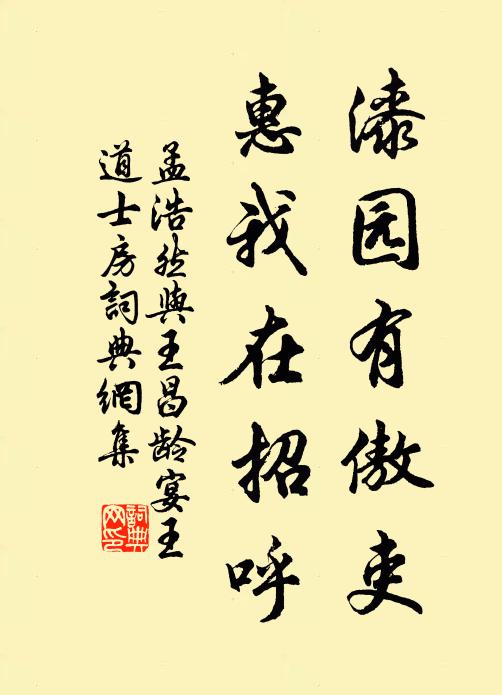 漆园有傲吏
惠我在招呼
孟浩然與王昌龄宴王
道士房詞典網集
詞典
网印